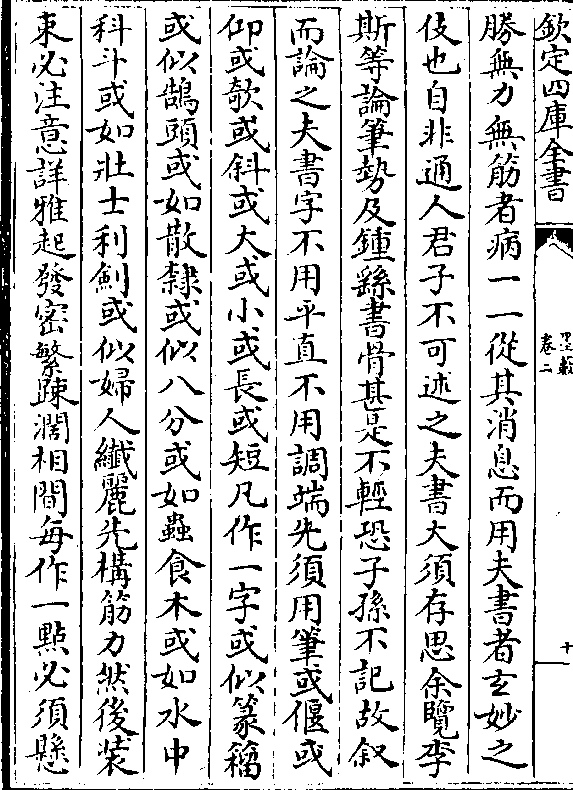 欽定四庫全書
墨藪
卷二
十
勝無力無筋者病一一從其消息而用夫書者𤣥妙之
伎也自非通人君子不可述之夫書大須存思余覽李
斯等論筆勢及鍾繇書骨甚是不輕恐子孫不記故叙
而論之夫書字不用平直不用調端先須用筆或偃或
仰或欹或斜或大或小或長或短凡作一字或似篆籕
或似鵠頭或如散隸或似八分或如蟲食木或如水中
科斗或如壯士利劍或似婦人纖麗先構筋力然後装
束必注意詳雅起發密繁踈濶相間每作一點必須懸